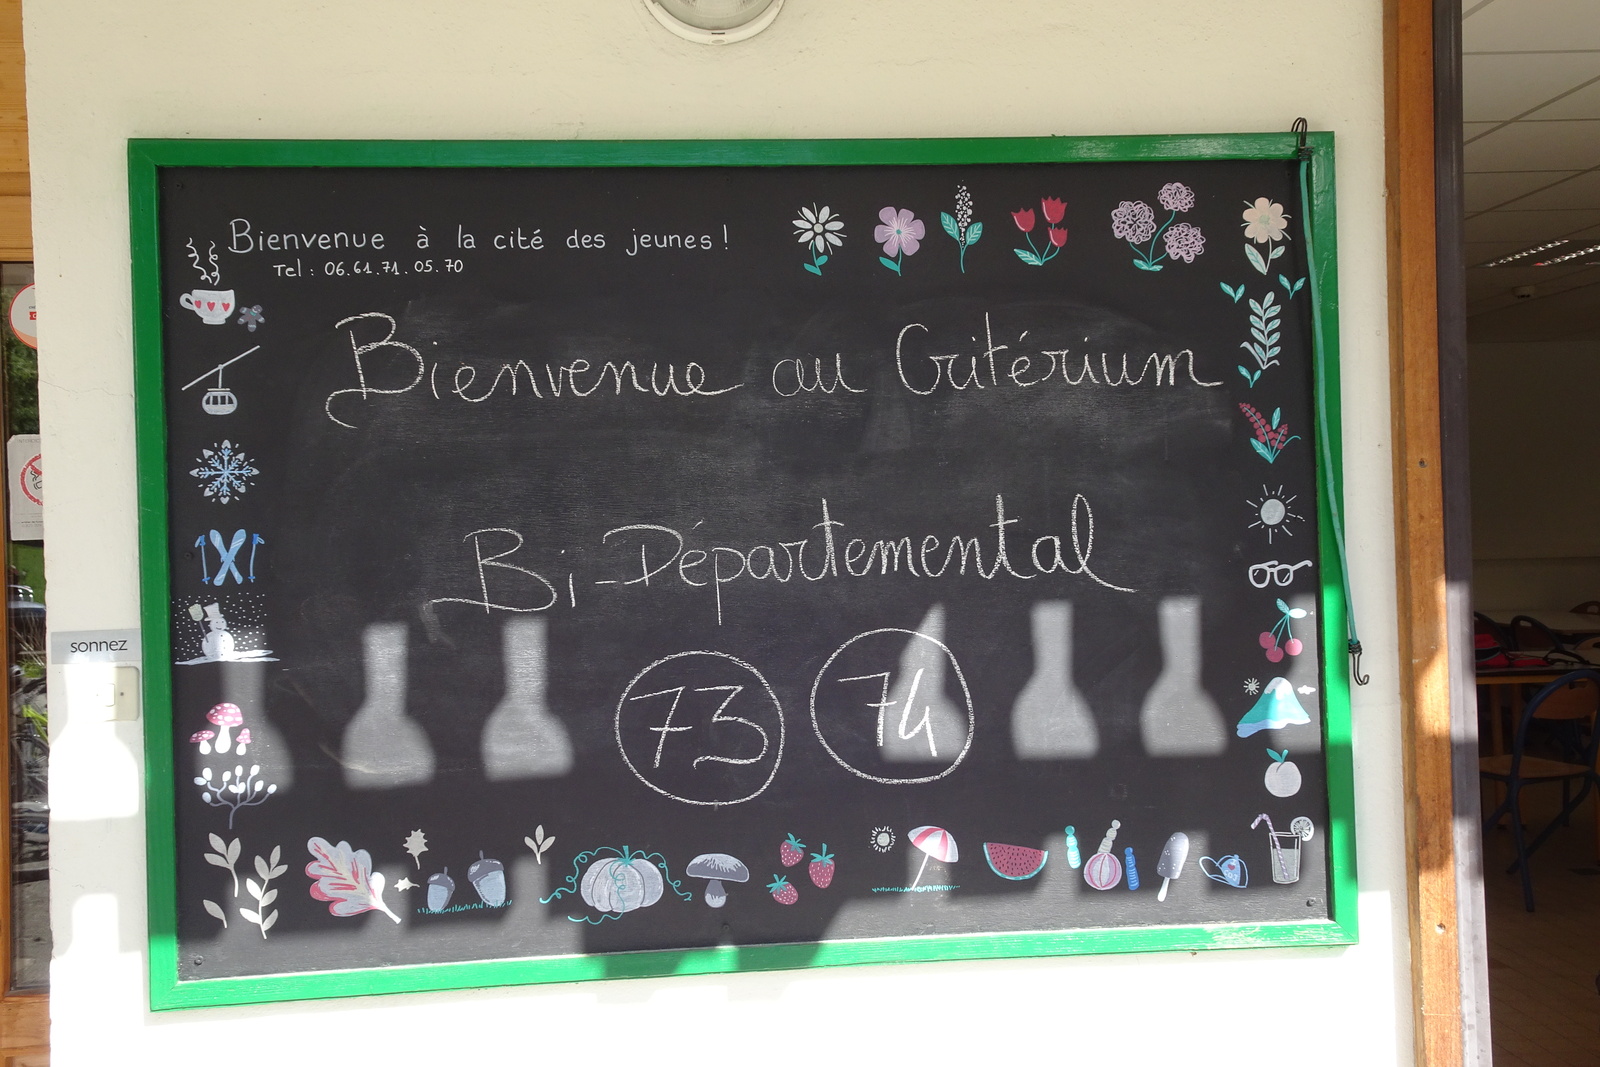 Bienvenue à la cité des jeunes !
Tel : 06.61.71.05.70
Bienvenue au Critérium
Bi-Départemental
sonnez
73 74